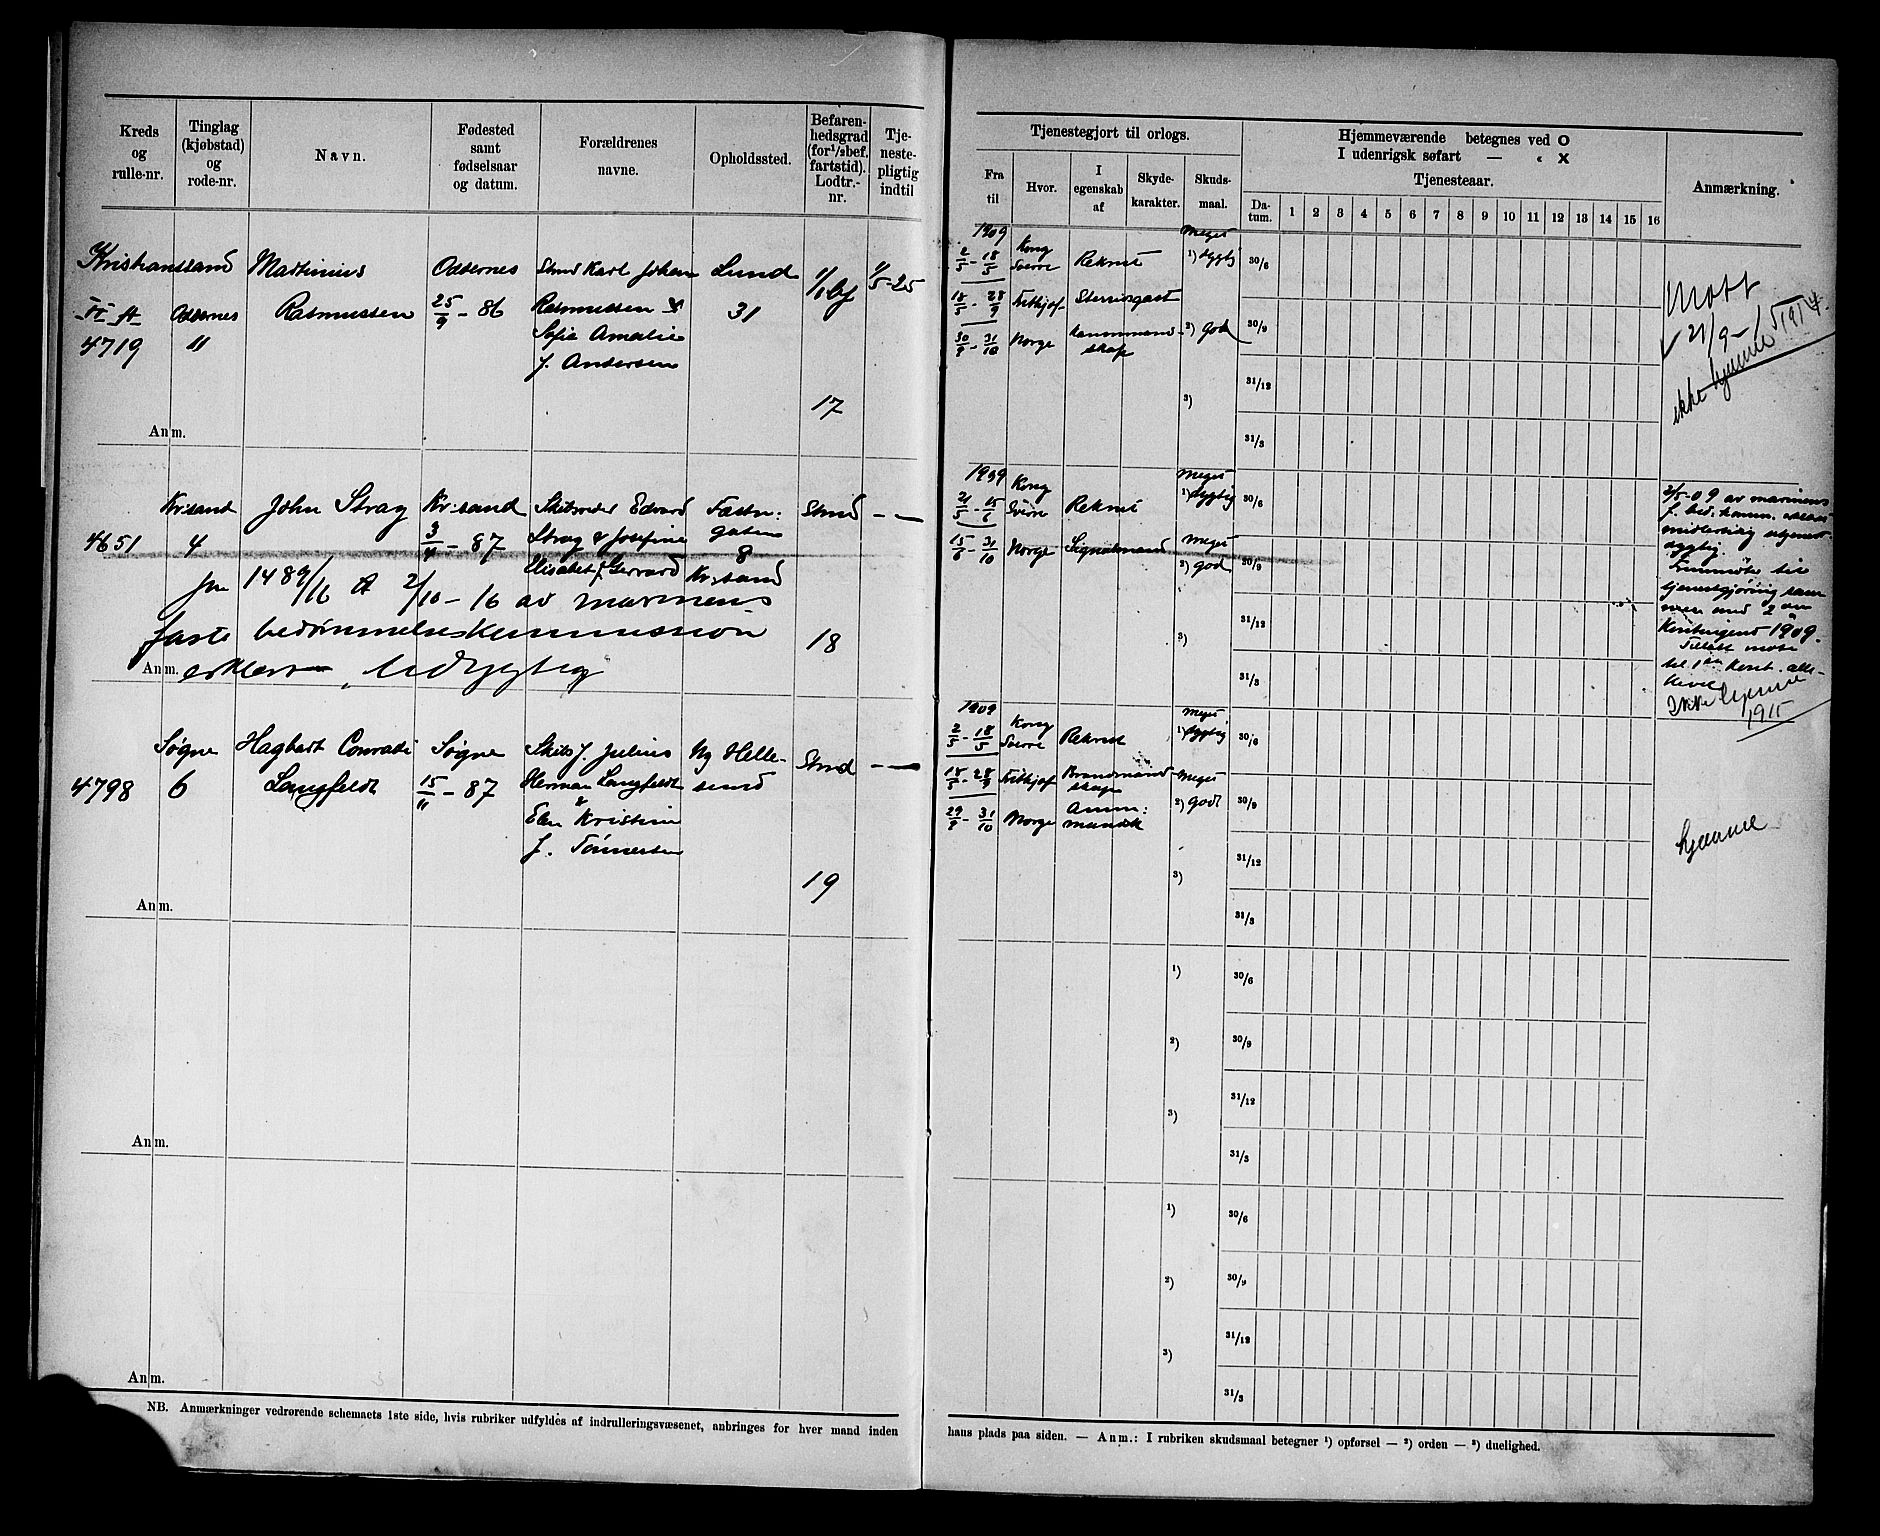 Kreds og rulle-nr.
Tinglag (kjøbstad) og rode-nr.
Navn.
Fødested samt fødselsaar og datum.
Forældrenes navne.
Opholdssted.
Befaren-hedsgrad (for ½bef. fartstid). Lodtr.-nr.
Tje-neste-pligtig indtil
Tjenestegjort til orlogs.
Fra til
Hvor.
I egenskab af
Skyde-karakter.
Skuds-maal.
Hjemmeværende betegnes ved O
I udenrigsk søfart — « X
Tjenesteaar.
Da-tum. 1 2 3 4 5 6 7 8 9 10 11 12 13 14 15 16
Anmærkning.
Kristianssand
II A
4719
Oddernes
11
Martinius
Rasmussen
Oddernes
25/9 - 86
Strmd Karl Johan
Rasmussen &
Sofie Amalie
f. Andersen
Lund
31
1/1 bf
17
1/5-25
1909
2/5 - 18/5 Kong Sverre Rekrut
18/5 - 28/9 Fridtjof
30/9 - 31/10 Norge Kanonmand-skap
Meget
1) dygtig
2) god
3)
30/6
30/9
31/12
31/3
Møtt
21/9 - 1914.
ikke hjemme
Anm.
4651
Kr:sand
4
John Stray
Kr:sand
3/4 - 87
Skibsreder Edvard
Stray & Josefine
Elisabet f. Gerrard
Fæstn:
gaten
8
Kr:sand
Strmd
— —
18
jnr 1489/16 A 2/10 - 16 av marinens
faste bedømmelseskommission
Anm. erklært udygtig
1909
21/5 - 15/6 Kong Sverre Rekrut
15/6 - 31/10 Norge Signalmand
Meget
1) dygtig
Meget
2) god
3)
30/6
30/9
31/12
31/3
2/5-09 av marinens
f. bed. komm. erklært
midlertidig utjenst-
dygtig.
Fremmøte til
tjenestgjøring sam
men med 2 en
kontingent 1909.
Tillatt møte
til 1 en kont. alle-
kevel
Ikke hjemme
1915
4798
Søgne
6
Hagbart Conradi
Langfeldt
Søgne
15/11 - 87
Skibsf. Julius
Herman Langfeldt
&
Elen Kristine
f. Tønnesen
Ny Helle-
sund
Strmd
— —
19
1909
2/5 - 18/5 Kong Sverre Rekrut
18/5 - 28/9 Fridtjof Brandmand
skap
29/9 - 31/10 Norge Amm:
mandsk
Meget
1) dygtig
Meget
2) godt
3)
30/6
30/9
31/12
31/3
hjemme
Anm.
1)
2)
3)
30/6
30/9
31/12
31/3
Anm.
1)
2)
3)
30/6
30/9
31/12
31/3
Anm.
NB. Anmærkninger vedrørende schemaets 1ste side, hvis rubriker udfyldes af indrulleringsvæsenet, anbringes for hver mand inden
hans plads paa siden. — Anm.: I rubriken skudsmaal betegner ¹) opførsel — ²) orden — ³) duelighed.